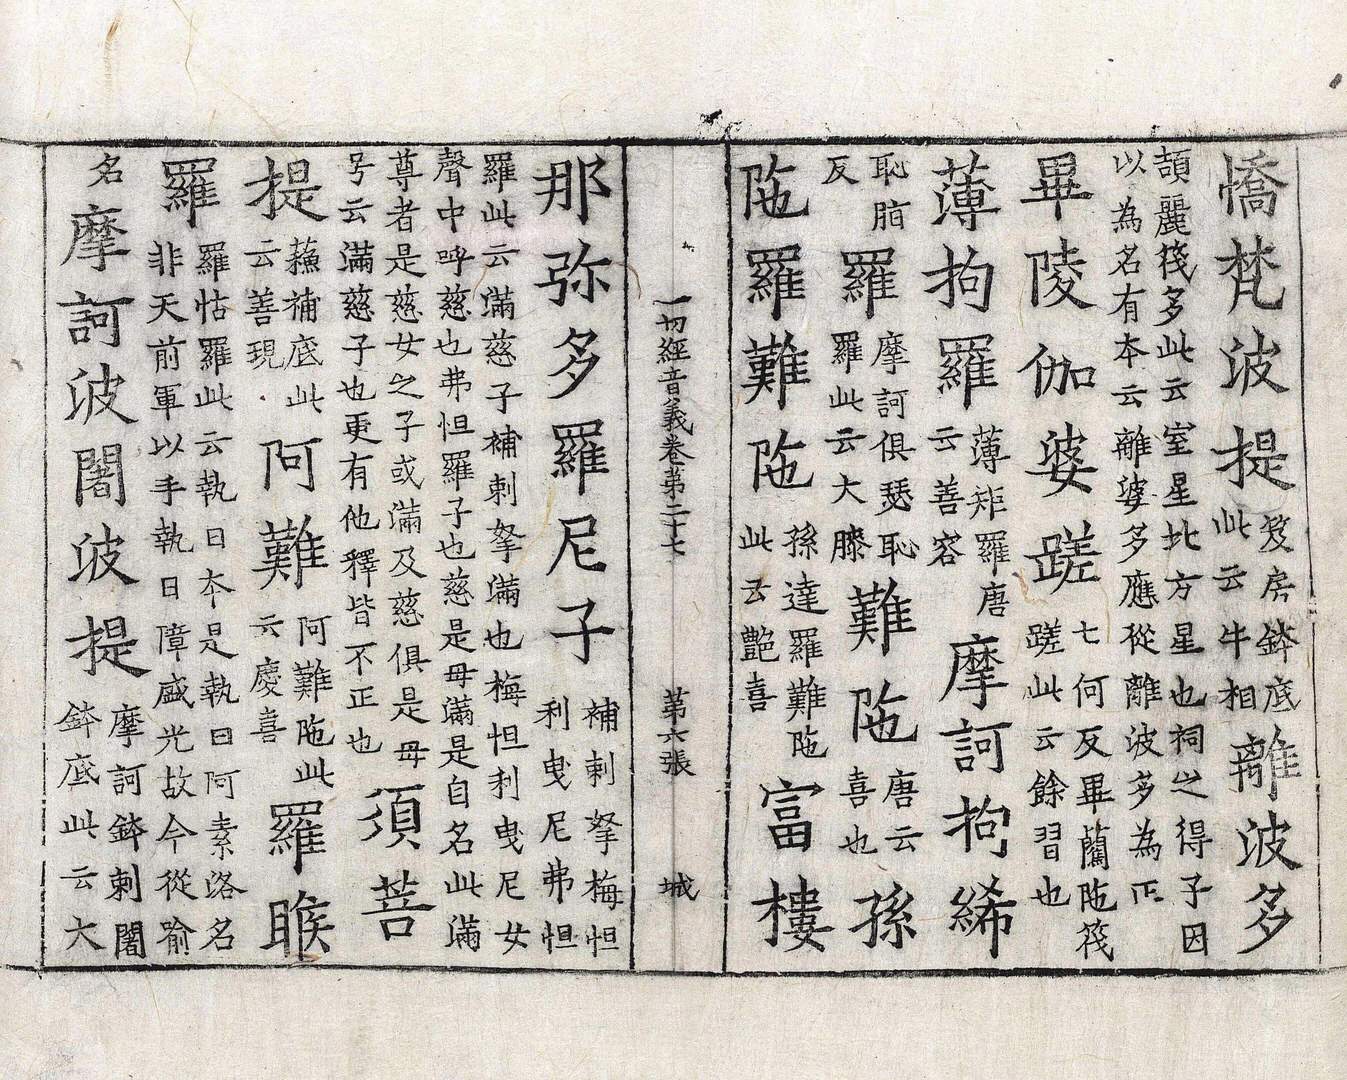 憍梵波提笈房鉢底此云牛相離波多
頡麗筏多此云室星北方星也祠之得子因
以為名有本云離婆多應從離波多為正
畢陵伽婆蹉七何反畢藺陁筏蹉此云餘習也
薄拘羅薄矩羅唐云善容摩訶拘絺
恥脂反羅摩訶俱瑟恥羅此云大膝難陁唐云喜也孫
陁羅難陁孫達羅難陁此云艶喜富樓
一切經音義卷第二十七 第六張 城
那弥多羅尼子補剌拏梅怛利曳尼弗怛
羅此云滿慈子補剌拏滿也梅怛利曳尼女
聲中呼慈也弗怛羅子也慈是母滿是自名此滿
尊者是慈女之子或滿及慈俱是母
号云滿慈子也更有他釋皆不正也須菩
提蘓補底此云善現阿難阿難陁此云慶喜羅睺
羅羅怙羅此云執日本是執日阿素洛名非天前軍以手執日障盛光故今從喻
名摩訶波闍波提摩訶鉢剌闍鉢底此云大